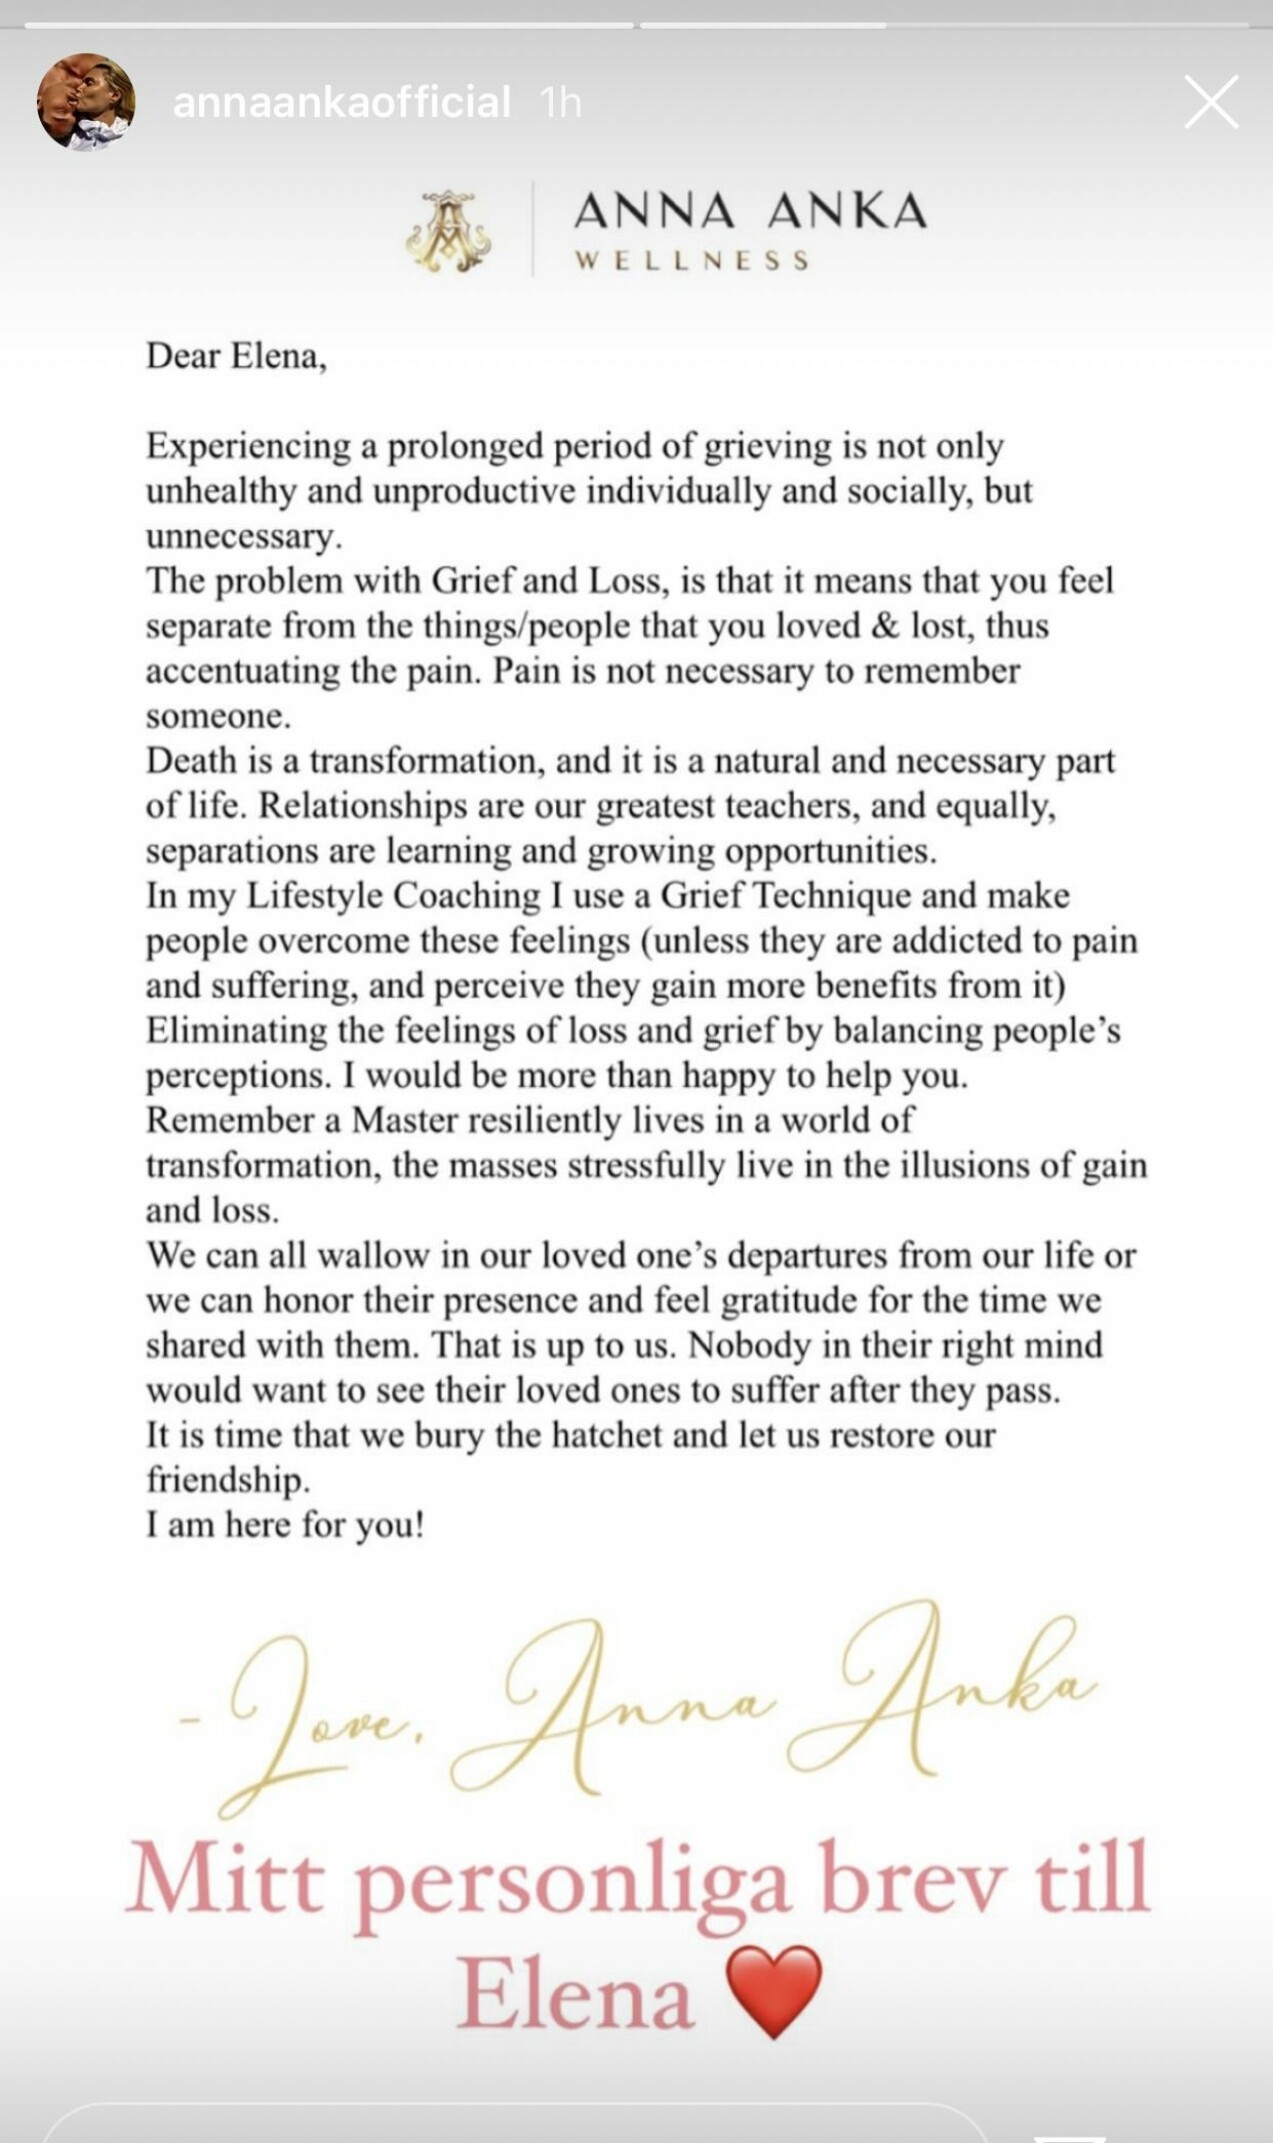 annaankaofficial 1h
ANNA ANKA
WELLNESS
Dear Elena,
Experiencing a prolonged period of grieving is not only
unhealthy and unproductive individually and socially, but
unnecessary.
The problem with Grief and Loss, is that it means that you feel
separate from the things/people that you loved & lost, thus
accentuating the pain. Pain is not necessary to remember
someone.
Death is a transformation, and it is a natural and necessary part
of life. Relationships are our greatest teachers, and equally,
separations are learning and growing opportunities.
In my Lifestyle Coaching I use a Grief Technique and make
people overcome these feelings (unless they are addicted to pain
and suffering, and perceive they gain more benefits from it)
Eliminating the feelings of loss and grief by balancing people’s
perceptions. I would be more than happy to help you.
Remember a Master resiliently lives in a world of
transformation, the masses stressfully live in the illusions of gain
and loss.
We can all wallow in our loved one’s departures from our life or
we can honor their presence and feel gratitude for the time we
shared with them. That is up to us. Nobody in their right mind
would want to see their loved ones to suffer after they pass.
It is time that we bury the hatchet and let us restore our
friendship.
I am here for you!
- Love, Anna Anka
Mitt personliga brev till
Elena ❤️